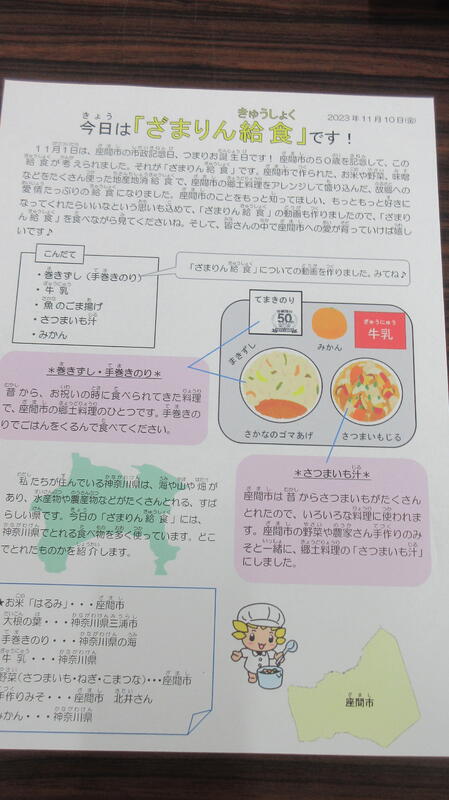 今日は「ざまりん給食」です！
2023年11月10日㊎
11月1日は、座間市の市政記念日、つまりお誕生日です！座間市の50歳を記念して、この
給食が考えられました。それが「ざまりん給食」です。座間市で作られた、お米や野菜、味噌
などをたくさん使った地産地消給食で、座間市の郷土料理をアレンジして盛り込んだ、座間への
愛情たっぷりの給食になりました。座間市のことをもっと知ってほしい、もっともっと好きに
なってくれたらいいなという思いも込めて、「ざまりん給食」の動画も作りましたので、「ざまり
ん給食」を食べながら見てくださいね。そして、皆さんの中で座間市への愛が育っていけば嬉し
いです♪
こんだて
・巻きずし（手巻きのり）
・牛乳
・魚のごま揚げ
・さつまいも汁
・みかん
「ざまりん給食」についての動画を作りました。みてね♪
てまきのり
50
みかん
ぎゅうにゅう
牛乳
まきずし
さかなのゴマあげ
さつまいもじる
＊巻きずし・手巻きのり＊
昔から、お祝いの時に食べられてきた料理
で、座間市の郷土料理のひとつです。手巻きの
りでごはんをくるんで食べてください。
＊さつまいも汁＊
座間市は昔からさつまいもがたくさん
とれたので、いろいろな料理に使われま
す。座間市の野菜や農家さん手作りのみ
そと一緒に、郷土料理の「さつまいも汁」
にしました。
私たちが住んでいる神奈川県は、海や山や畑が
あり、水産物や農産物などがたくさんとれる、すば
らしい県です。今日の「ざまりん給食」には、
神奈川県でとれる食べ物を多く使っています。どこ
でとれたものかを紹介します。
★お米「はるみ」・・・座間市
大根の葉・・・神奈川県三浦市
手巻きのり・・・神奈川県の海
牛乳・・・神奈川県
野菜（さつまいも・ねぎ・こまつな）・・・座間市
手作りみそ・・・座間市　北井さん
みかん・・・神奈川県
座間市